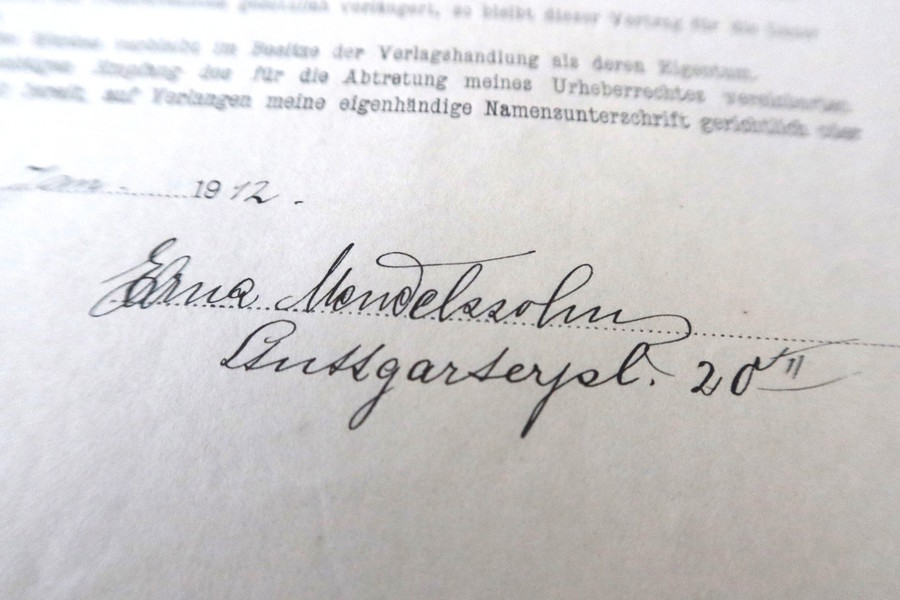 verlängert, so bleibt dieser Vertrag für die Dauer
verbleibt im Besitze der Verlagshandlung als deren Eigentum.
Empfang des für die Abtretung meines Urheberrechtes vereinbarten
bereit, auf Verlangen meine eigenhändige Namensunterschrift gerichtlich oder
1912.
Erna Mendelssohn
Stuttgarterpl. 20 II